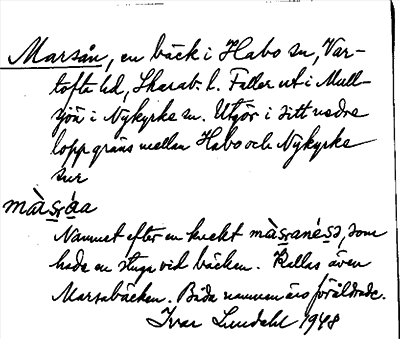 Marsån, en bäck i Habo sn, Var-
tofta hd, Skarab. l. Faller ut i Mull-
sjön i Nykyrke sn. Utgör i sitt nedre
lopp gräns mellan Habo och Nykyrke
snr
màṣṛáa
Namnet efter en knekt màṣranéṣə, som
hade en stuga vid bäcken. Kallas även
Marsabäcken. Båda namnen äro föråldrade.
Ivar Lundahl 1948